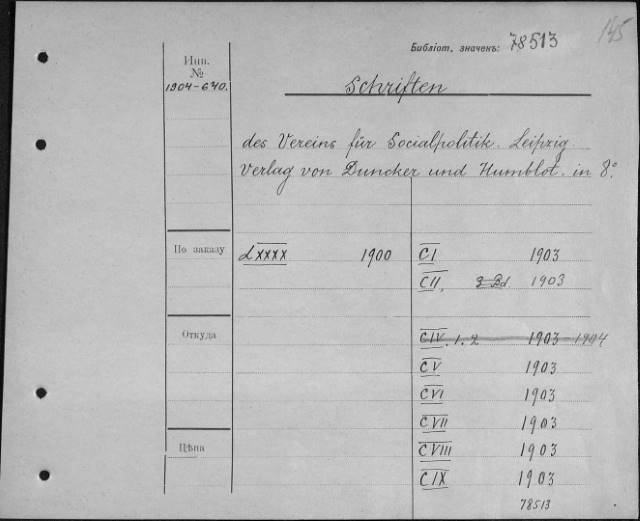 145
Библіот. значекъ: 78513
Инв.
№
1904-640.
Schriften
des Vereins für Socialpolitik. Leipzig.
Verlag von Duncker und Humblot. in 8°
По заказу
LXXXX 1900
CI 1903
CII, 3 Bd. 1903
Откуда
CIV. 1. 2 1903-1904
CV 1903
CVI 1903
CVII 1903
Цѣна
CVIII 1903
CIX 1903
78513